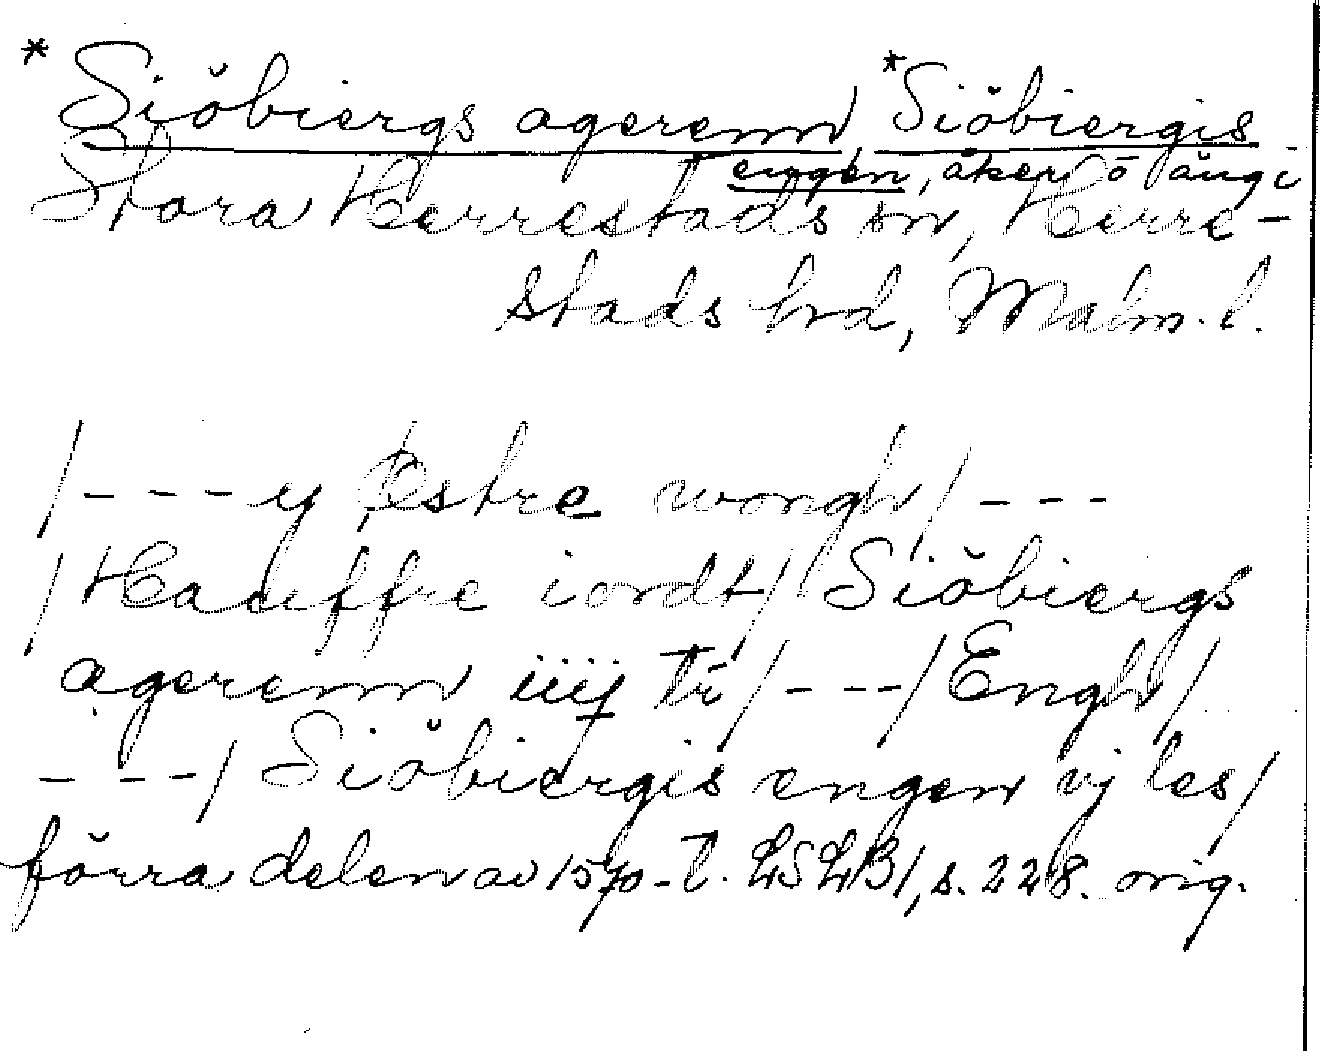 * Siöbiergs agerenn, * Siöbiergis
engen, åker o äng i
Stora Herrestads sn, Herre-
stads hrd, Malm. l.
/--- y Østre wongh/ ---
/Haeffue iordt/ Siöbiergs
agerenn iiij tr/---/Engh/
---/ Siöbiergis engen vj les/
förra delen av 1570-t. LSLB1, s. 228. orig.